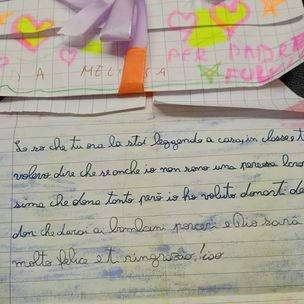 DA MELISSA
PER PADRE
Lo so che tu ora la stai leggendo a casa, in classe e t
volevo dire che se anche io non sono una persona
sima che dona tanto però io ho voluto donarti de
don che darai ai bambini poveri e Dio sarà
molto felice e ti ringrazio! ciao